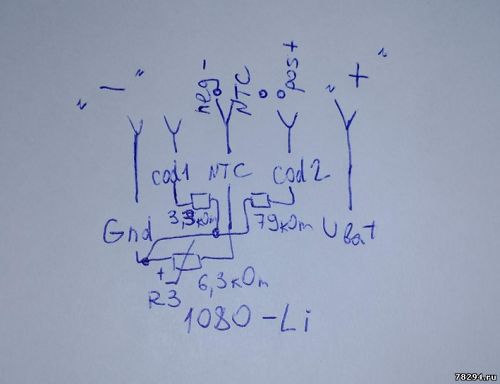 " — "
neg-
NTC
pos+
" + "
cod1
NTC
cod2
3,3кОm
79кОm
Gnd
Ubat
+
R3
6,3кОm
1080-Li
78294.ru